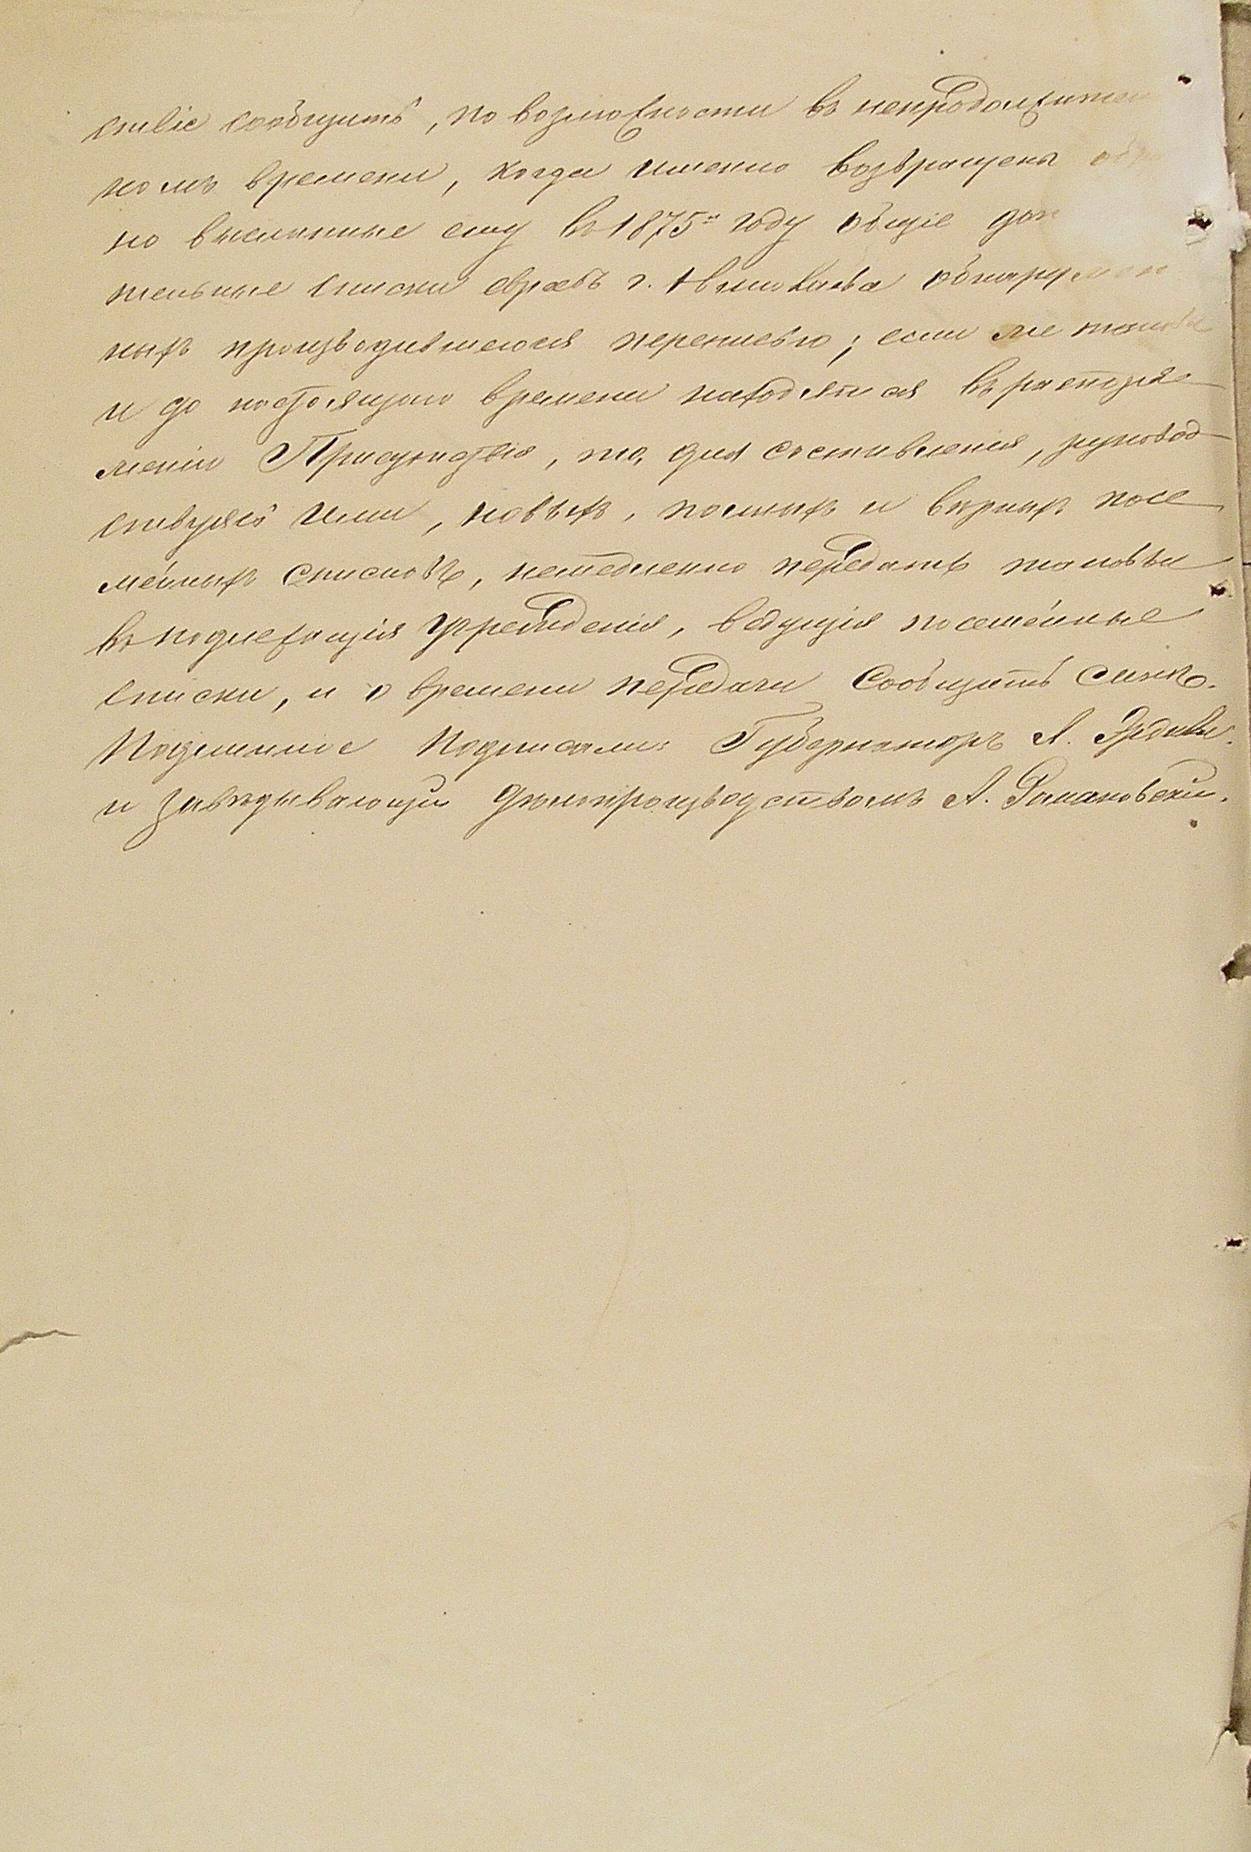 ствіе сообщить, по возможности въ непродолжитель
номъ времени, когда именно возвращены обра
но высланные ему въ 1875 году общіе допо
тельные списки евреевъ г. Николаева обнаружен
ныхъ производившеюся переписью; если же таковые
и до настоящаго времени находятся въ распоря-
женіи Присутствія, то, для составленія, руковод-
ствуясь ими, новыхъ, полныхъ и верныхъ посе-
мейныхъ списковъ, немедленно передать таковые
въ подлежащія учрежденія, ведущія посемейные
списки, и о времени передачи сообщить
Подлинное подписали: Губернаторъ А. Эрдели
и завѣдывающій дѣлопроизводствомъ А. Романовскій.